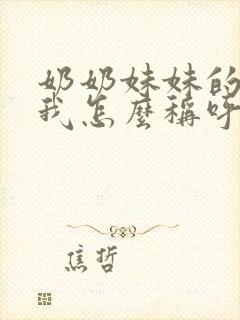 奶奶妹妹的
我怎麼稱呼
焦哲